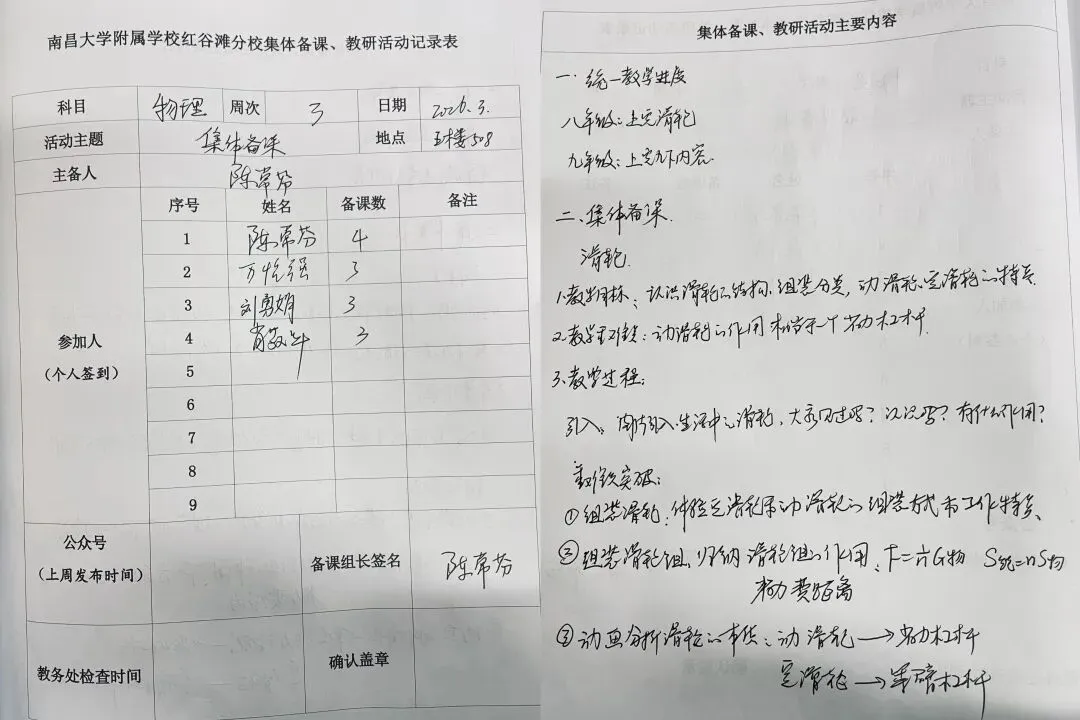 南昌大学附属学校红谷滩分校集体备课、教研活动记录表
科目 物理 周次 3 日期 2026.3.
活动主题 集体备课 地点 五楼508
主备人 陈常芬
参加人
(个人签到)
序号 姓名 备课数 备注
1 陈常芬 4
2 万悦强 3
3 刘勇娟 3
4 肖 3
5
6
7
8
9
公众号
(上周发布时间)
备课组长签名 陈常芬
教务处检查时间 确认盖章
集体备课、教研活动主要内容
一. 统一教学进度
八年级：上完滑轮
九年级：上完九下内容.
二、集体备课.
滑轮.
1.教学目标：认识滑轮的结构、组装分类，动滑轮、定滑轮的特点.
2.教学重难点：动滑轮的作用 相当于一个省力杠杆.
3.教学过程：
引入：图片引入生活中的滑轮，大家见过吗？认识吗？有什么作用？
重难点突破：
①组装滑轮，体验定滑轮和动滑轮的组装方式和工作特点、
②组装滑轮组，归纳滑轮组的作用：F=1/nG物 S绳=nS物
省力费距离
③动画分析滑轮的本质：动滑轮→省力杠杆
定滑轮→等臂杠杆